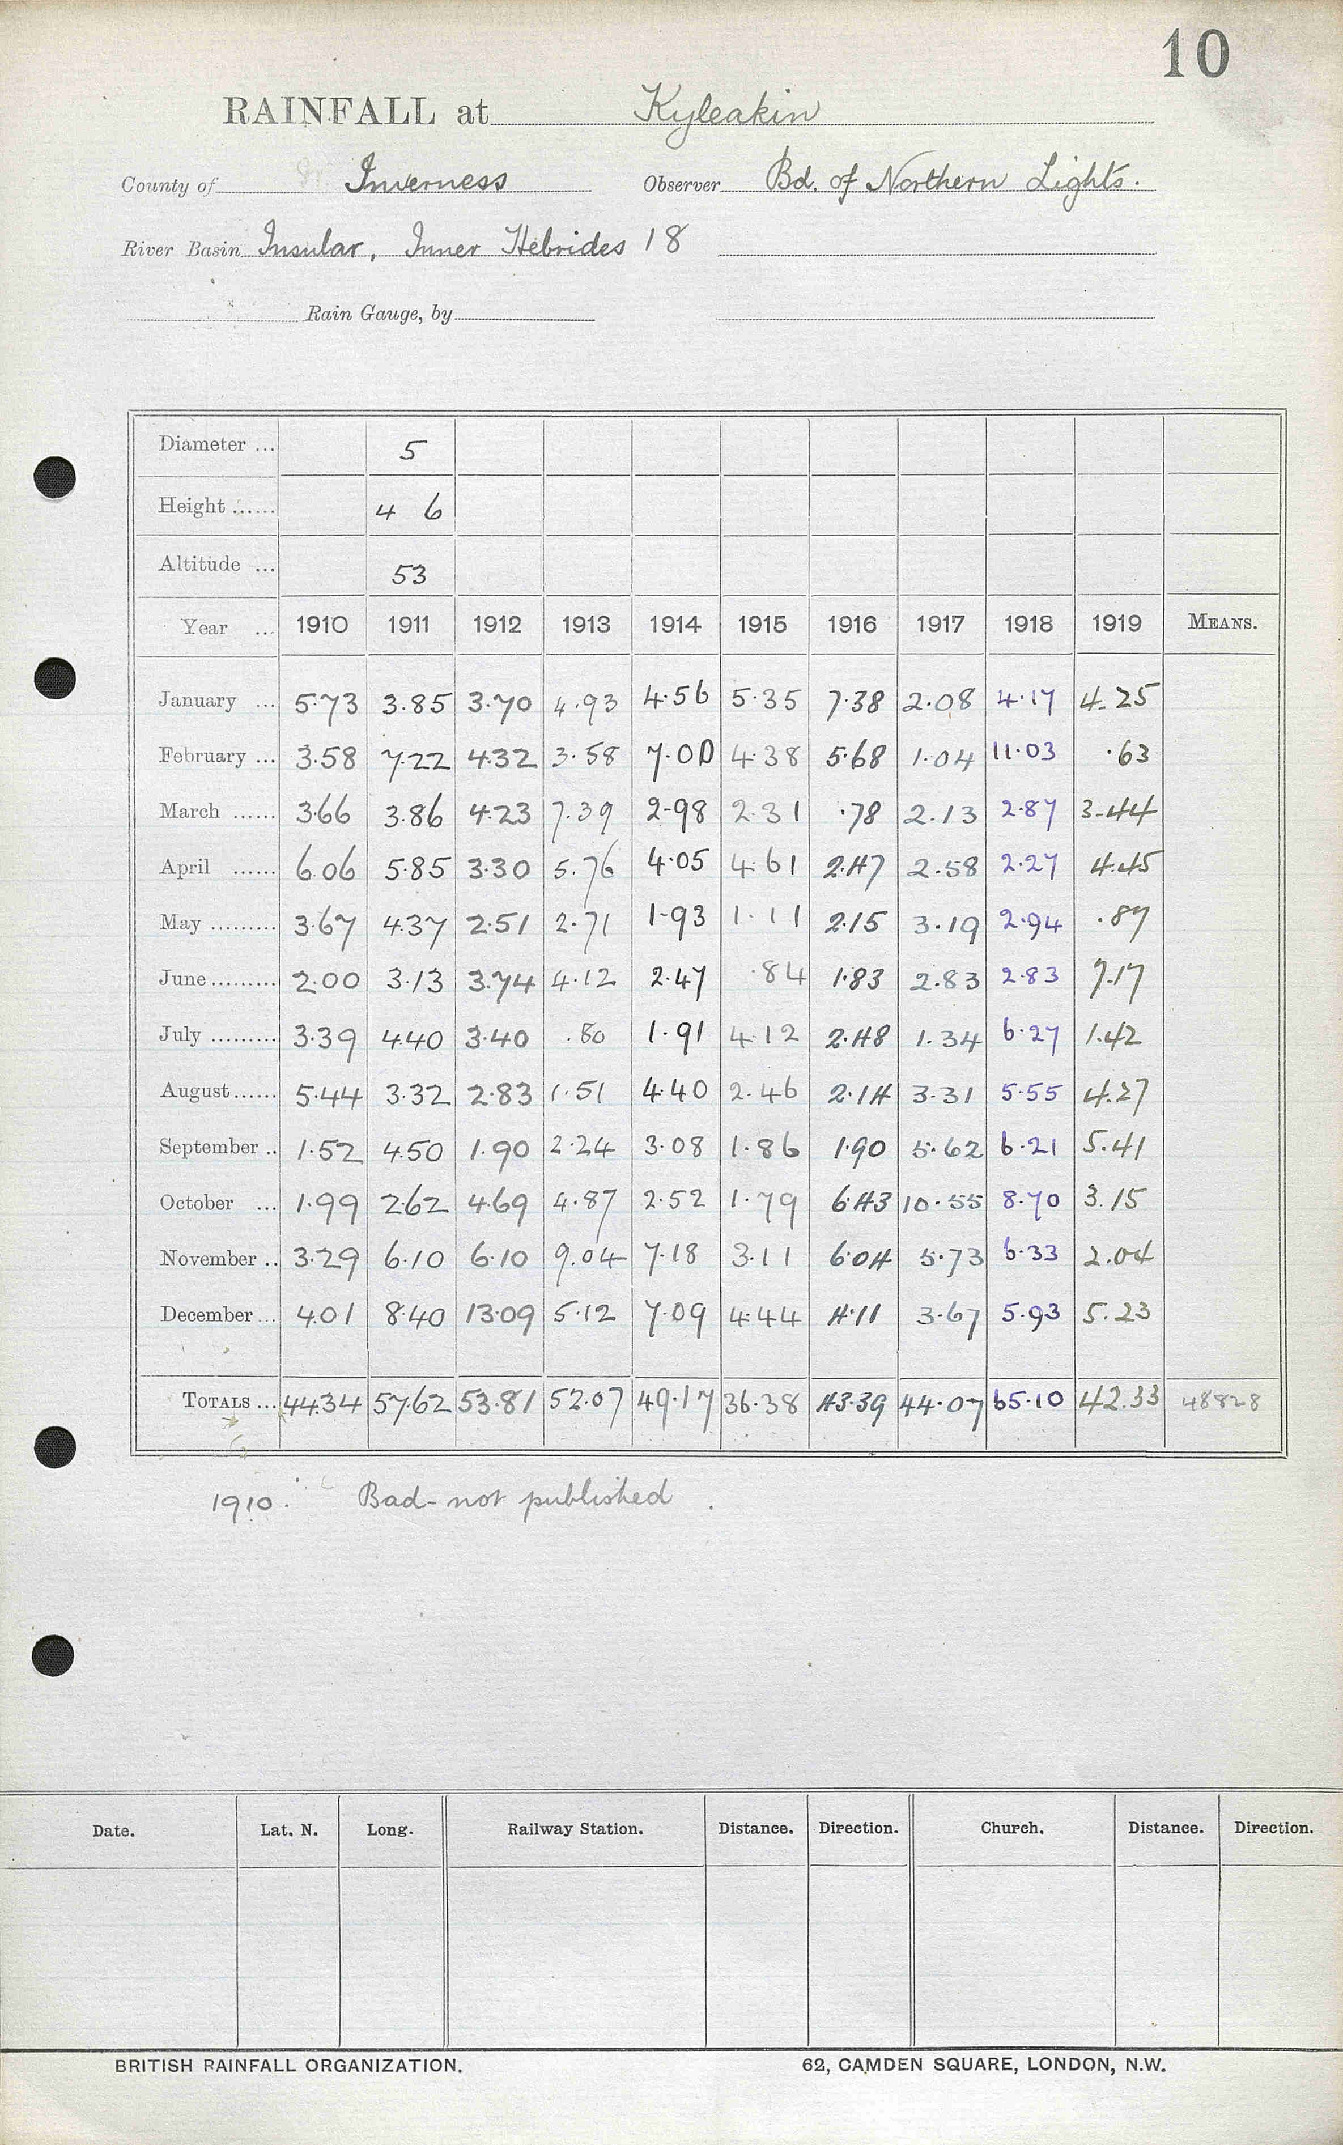 10
RAINFALL at Kyleakin
County of Inverness Observer Bd. of Northern Lights.
River Basin Insular, Inner Hebrides 18
Rain Gauge, by
Diameter ... 5
Height ...... 4 6
Altitude ... 53
Year ... 1910 1911 1912 1913 1914 1915 1916 1917 1918 1919 MEANS.
January ... 5.73 3.85 3.70 4.93 4.56 5.35 7.38 2.08 4.17 4.25
February ... 3.58 7.22 4.32 3.58 7.00 4.38 5.68 1.04 11.03 .63
March ...... 3.66 3.86 4.23 7.39 2.98 2.31 .78 2.13 2.87 3.44
April ...... 6.06 5.85 3.30 5.76 4.05 4.61 2.47 2.58 2.27 4.45
May ......... 3.67 4.37 2.51 2.71 1.93 1.11 2.15 3.19 2.94 .87
June ......... 2.00 3.13 3.74 4.12 2.47 .84 1.83 2.83 2.83 7.17
July ......... 3.39 4.40 3.40 .80 1.91 4.12 2.48 1.34 6.27 1.42
August ...... 5.44 3.32 2.83 1.51 4.40 2.46 2.14 3.31 5.55 4.27
September .. 1.52 4.50 1.90 2.24 3.08 1.86 1.90 5.62 6.21 5.41
October ... 1.99 2.62 4.69 4.87 2.52 1.79 6.43 10.55 8.70 3.15
November .. 3.29 6.10 6.10 9.04 7.18 3.11 6.04 5.73 6.33 2.04
December ... 4.01 8.40 13.09 5.12 7.09 4.44 4.11 3.67 5.93 5.23
TOTALS ... 44.34 57.62 53.81 52.07 49.17 36.38 43.39 44.07 65.10 42.33 48828
1910. Bad - not published.
Date. Lat. N. Long. Railway Station. Distance. Direction. Church. Distance. Direction.
BRITISH RAINFALL ORGANIZATION. 62, CAMDEN SQUARE, LONDON, N.W.